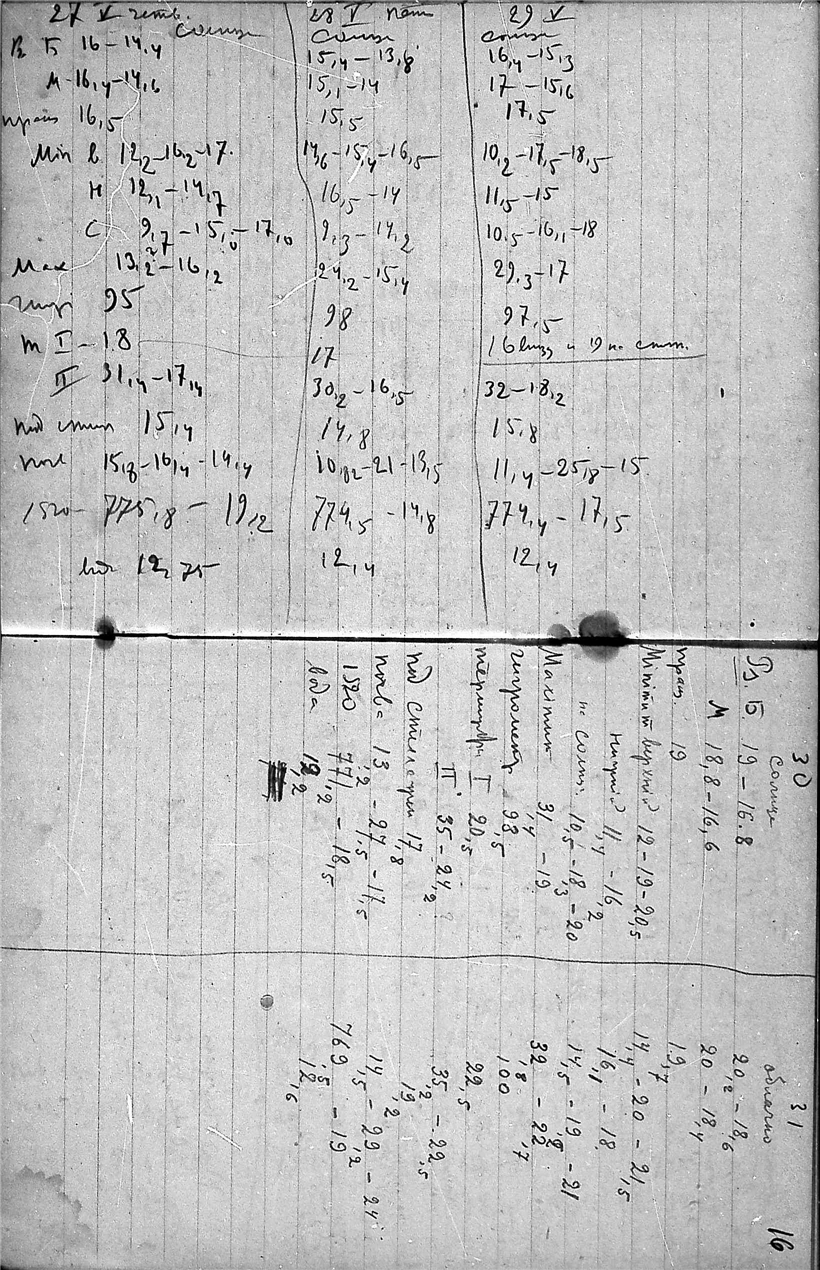 27 V четв. 28 V пятн 29 V
солнце солнце солнце
В Б 16-14,4 15,4-13,8 16,4-15,3
М-16,4-14,6 15,1-14 17-15,6
пращ 16,5 15,5 17,5
Min в 12,2-16,2-17. 14,6-15,4-16,5 10,2-17,5-18,5
н 12,1-14,7 16,5-14 11,5-15
С 9,7-15,0-17,0 9,3-14,2 10,5-16,1-18
Max 13,2-16,2 24,2-15,4 29,3-17
гигр 95 98 97,5
т I-18 17 16 и 19 по
II 31,4-17,4 30,2-16,5 32-18,2
под 15,4 14,8 15,8
почв 15,8-16,4-14,4 10,82-21-13,5 11,4-25,8-15
1520 775,8-19,2 774,5-14,8 774,4-17,5
вод 12,75 12,4 12,4
30
солнце
Вз. Б. 19-16.8
М 18,8-16,6
пращ. 19
Minimum верхний 12-19-20,5
нижний 11,4-16,2
на солнц. 10,5-18,3-20
Maximum 31,4-19
гигрометр 98,5
термограф I 20,5
II 35-24,2
под 17,8
почва 13,2-27,5-17,5
1520 771,2-18,5
вода 12,2
31
облачно
16
20,2-18,6
20-18,4
19,7
14,4-20-21,5
16,1-18
14,5-19,2-21
32,8-22,7
100
22,5
35,2-22,5
19,2
14,5-29,2-24
769,5-19
12,6